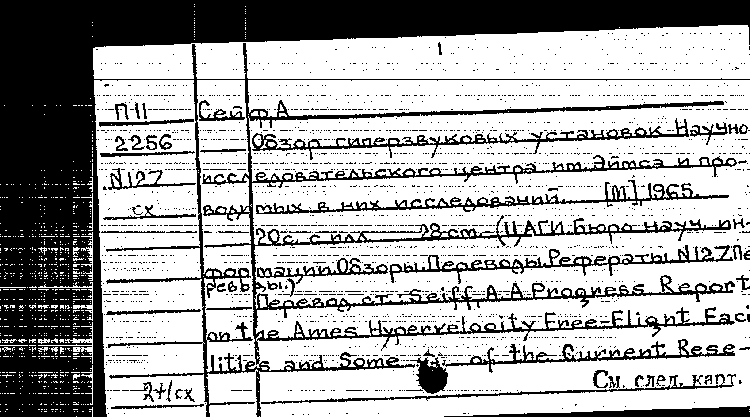 1
П11 Сейф, А
2256 Обзор гиперзвуковых установок Научно-
N127 исследовательского центра им. Эймса и про-
сх водимых в них исследований. [М], 1965.
20с. с илл. 28 см. (ЦАГИ. Бюро науч. ин-
формации. Обзоры. Переводы. Рефераты. N127
Перевод ст.: Seiff, A. A Progress Report
on the Ames Hypervelocity Free-Flight Faci
lities and Some of the Current Rese-
2+1сх См. след. карт.